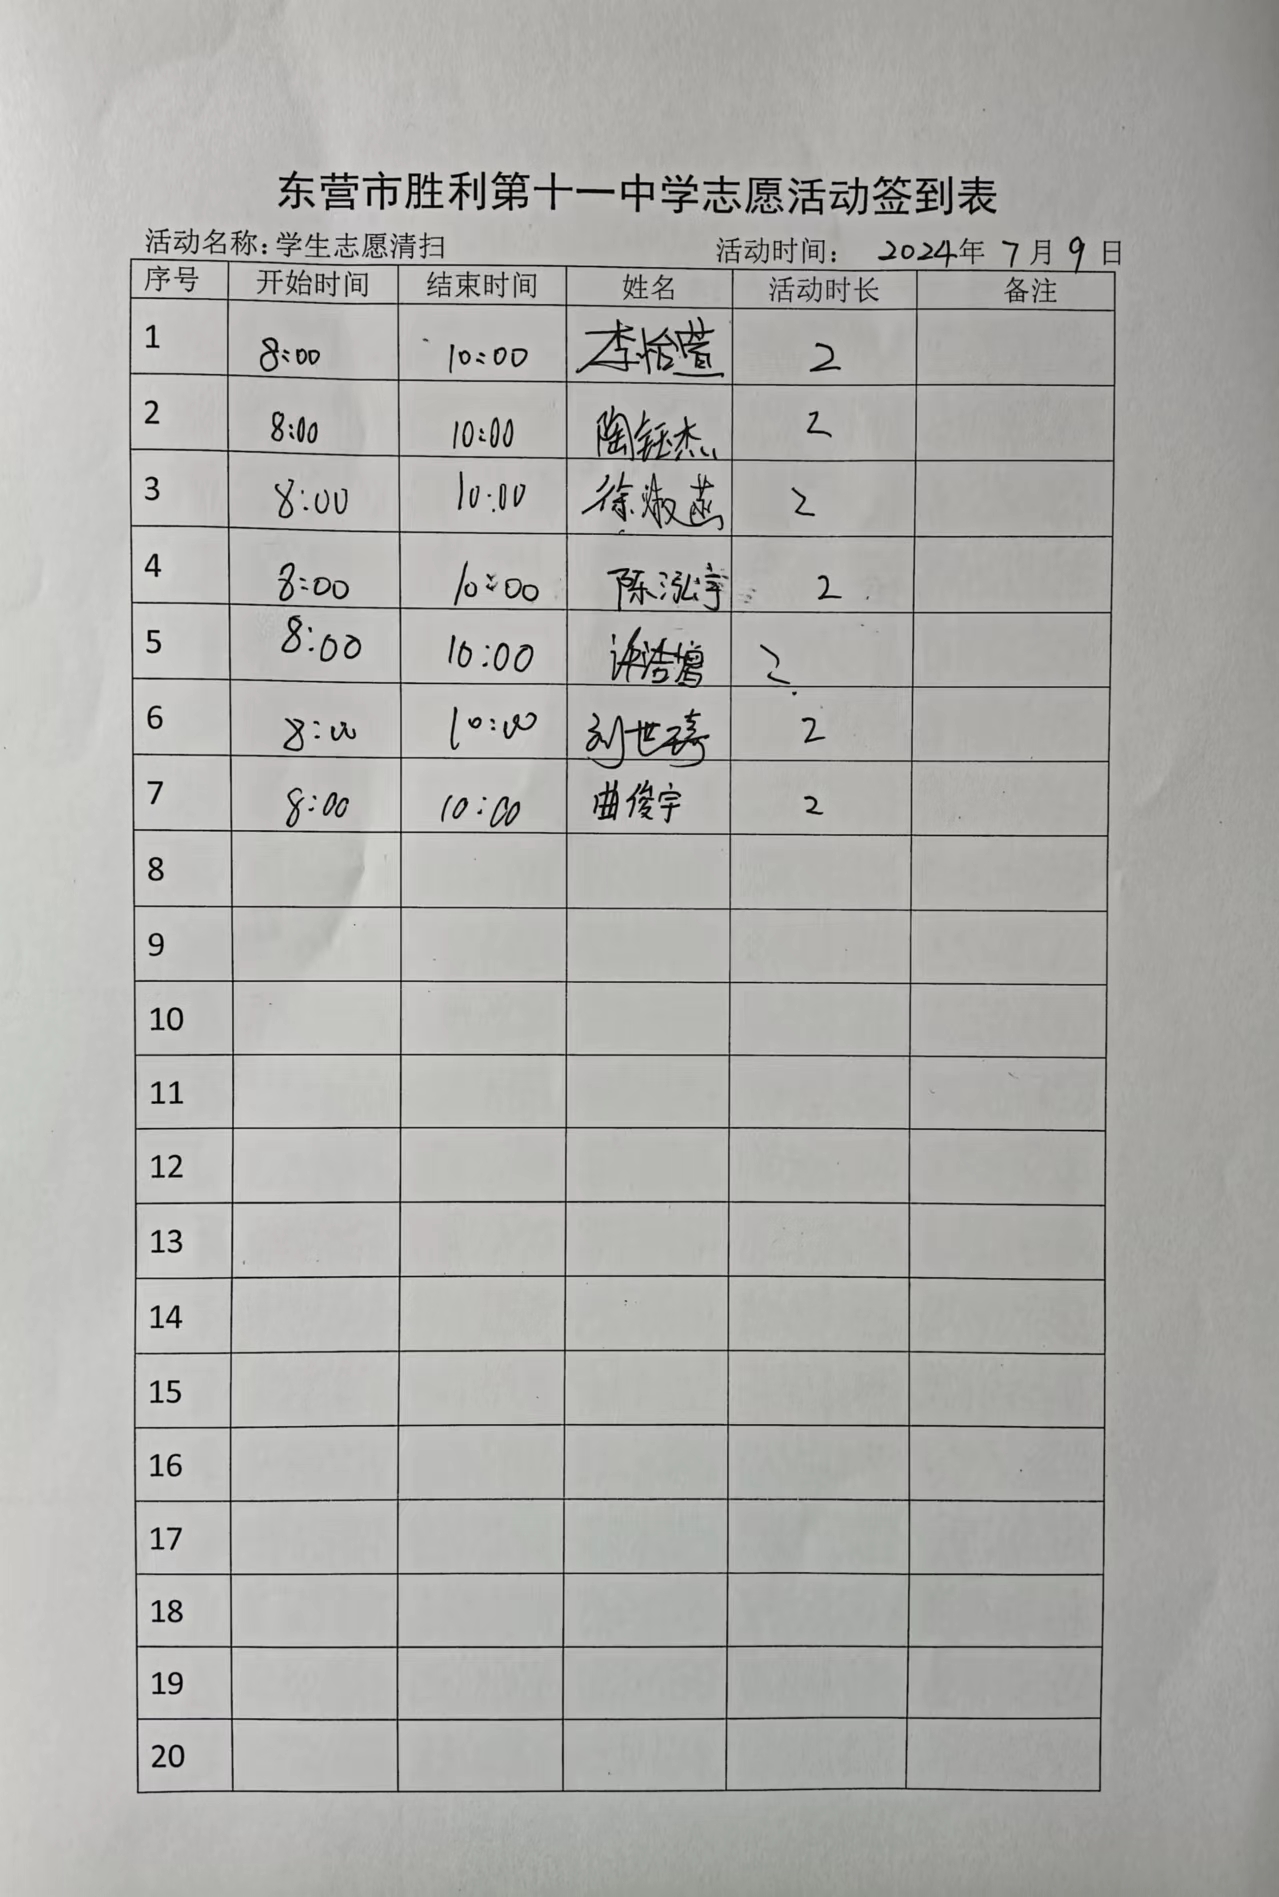 东营市胜利第十一中学志愿活动签到表
活动名称:学生志愿清扫 活动时间: 2024年 7月 9日
序号 开始时间 结束时间 姓名 活动时长 备注
1 8:00 10:00 李怡萱 2
2 8:00 10:00 陶钰杰 2
3 8:00 10:00 徐淑菡 2
4 8:00 10:00 陈泓宇 2
5 8:00 10:00 2
6 8:00 10:00 刘世琦 2
7 8:00 10:00 曲俊宇 2
8
9
10
11
12
13
14
15
16
17
18
19
20